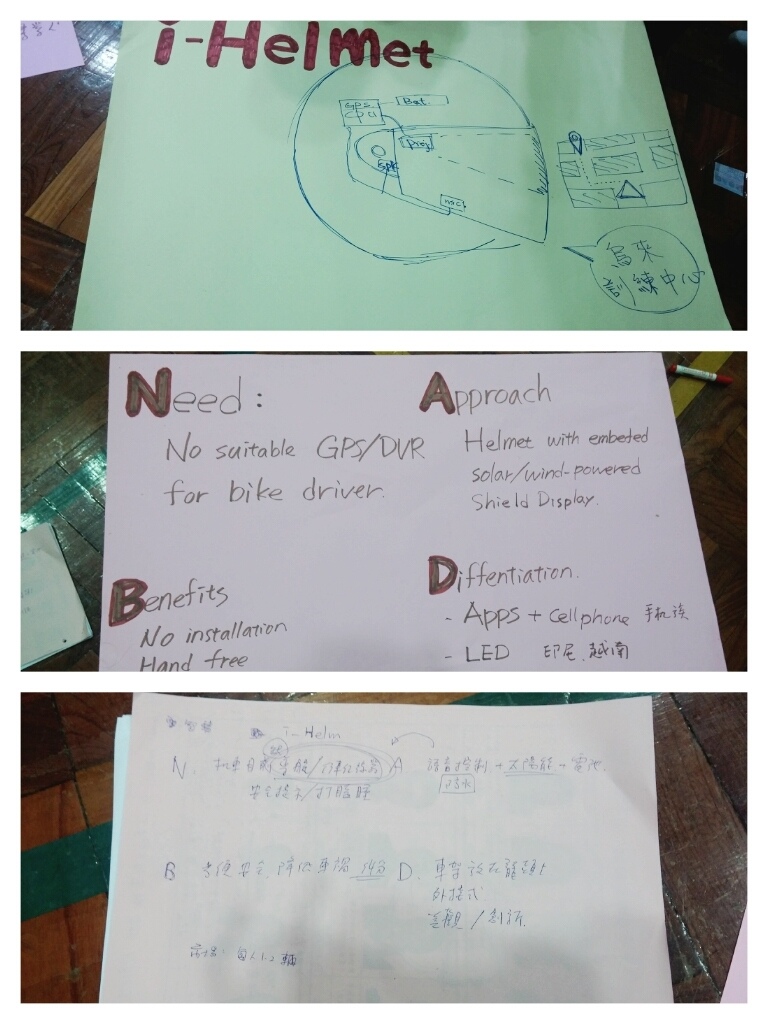 i-Helmet
GPS Bat.
CPU
Proj
Spk
mic.
烏來
訓練中心
Need:
No suitable GPS/DVR
for bike driver.
Approach
Helmet with embeted
solar/wind-powered
Shield Display.
Benefits
No installation
Hand free
Diffentiation.
- Apps + Cellphone 手机族
- LED 印尼.越南
i-Helm
N.
A 語音控制 + 太陽能 → 電池.
防水
安全提示/打瞌睡
B
D. 車架放在龍頭上
外掛式
美觀/創新
市場: 每人1~2輛